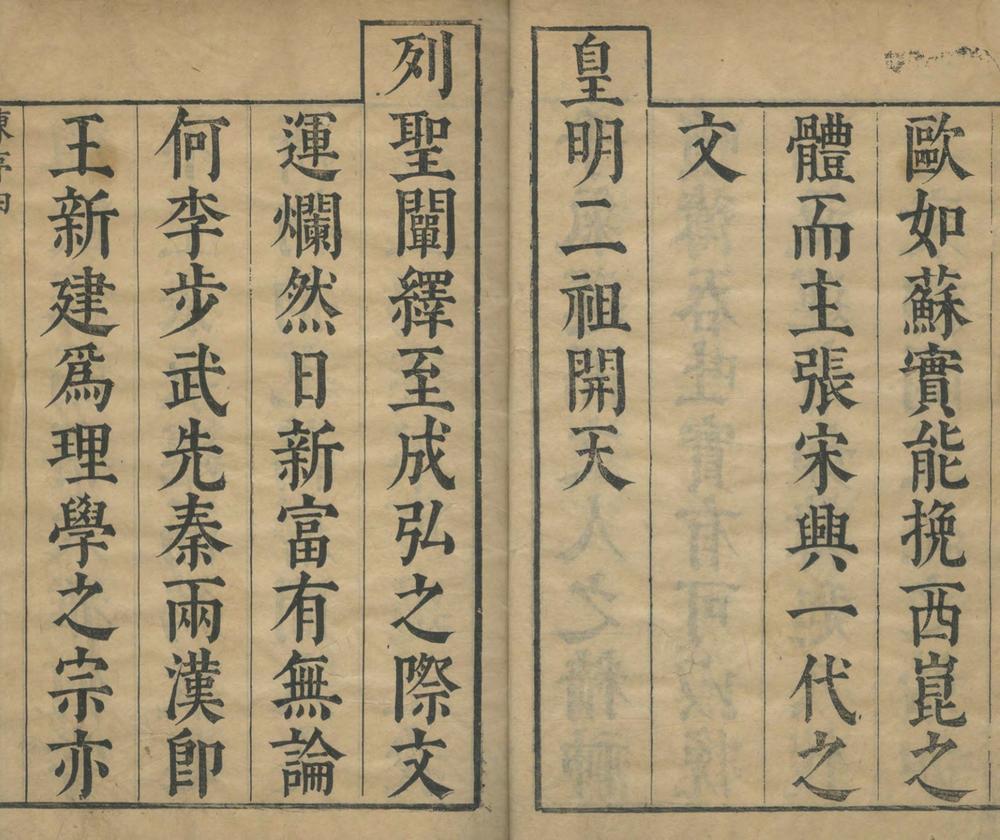 歐如蘇實能挽西崑之
體而主張宋興一代之
文
皇明二祖開天
列聖闡繹至成弘之際文
運爛然日新富有無論
何李步武先秦兩漢卽
王新建爲理學之宗亦